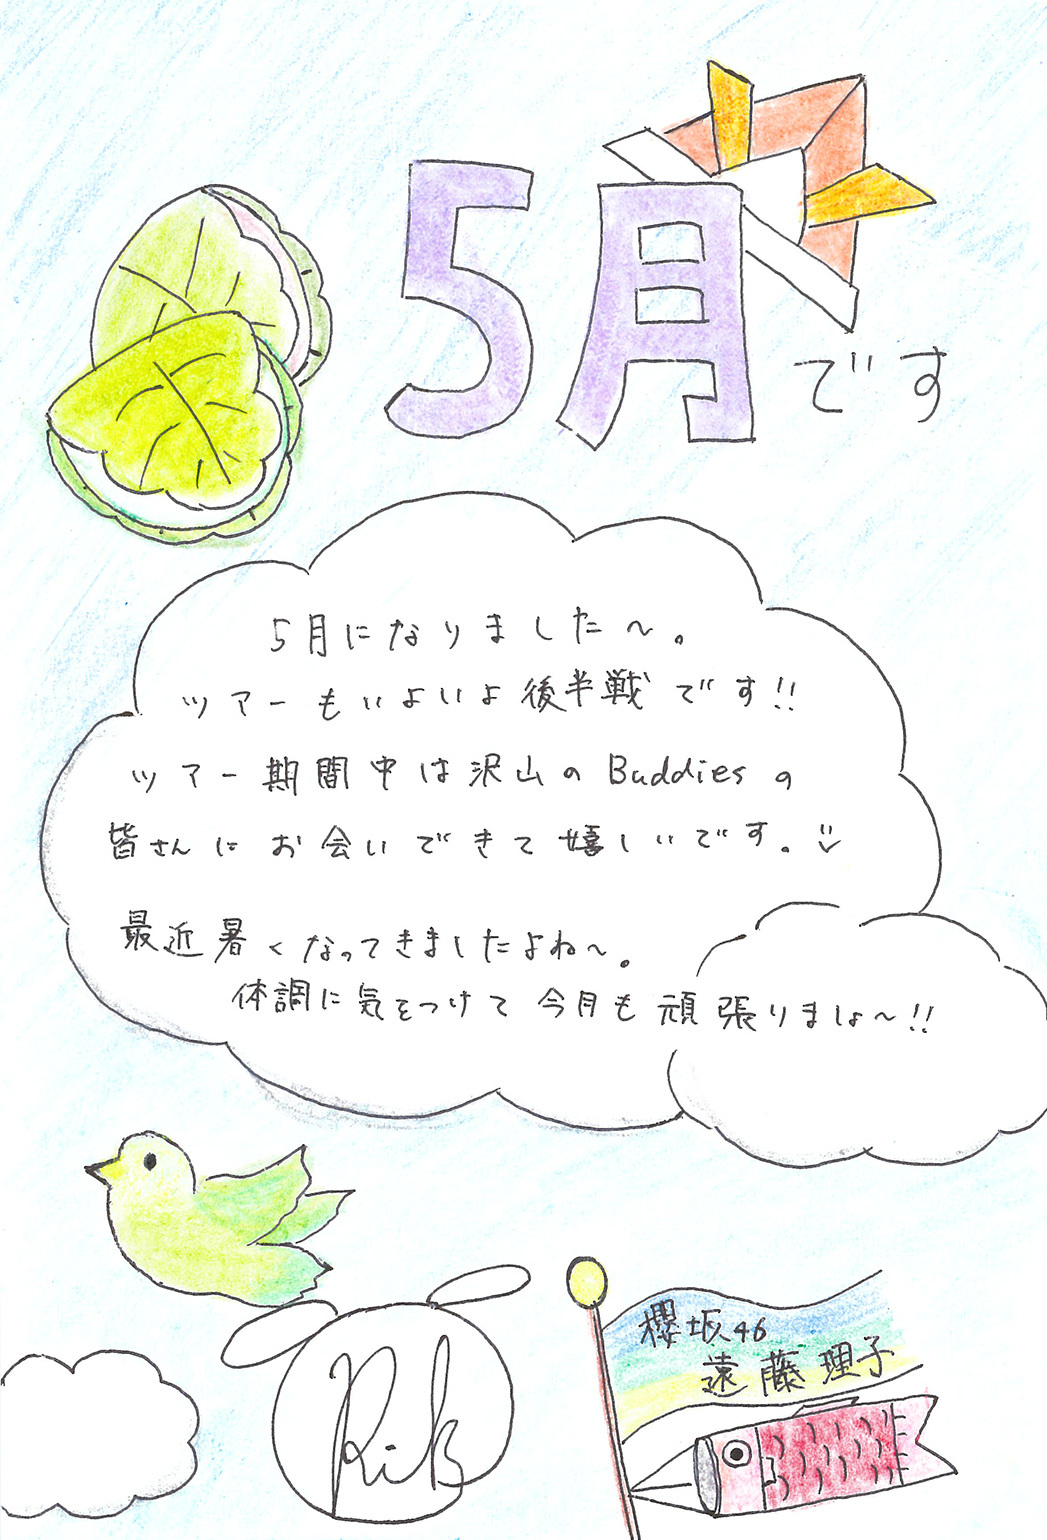 5月です
5月になりました〜。
ツアーもいよいよ後半戦です!!
ツアー期間中は沢山のBuddiesの
皆さんにお会いできて嬉しいです。
最近暑くなってきましたよね〜。
体調に気をつけて今月も頑張りましょ〜!!
櫻坂46
遠藤理子
Riko